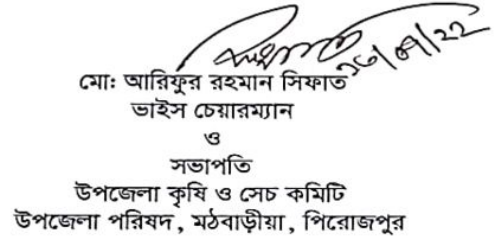 মো: আরিফুর রহমান সিফাত
ভাইস চেয়ারম্যান
ও
সভাপতি
উপজেলা কৃষি ও সেচ কমিটি
উপজেলা পরিষদ, মঠবাড়ীয়া, পিরোজপুর